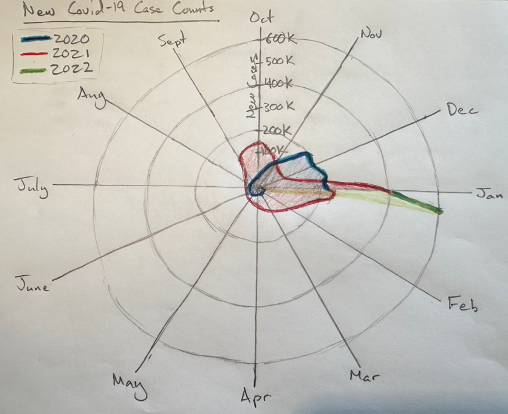 New Covid-19 Case Counts
2020
2021
2022
Oct
Nov
Dec
Jan
Feb
Mar
Apr
May
June
July
Aug
Sept
600K
500K
400K
300K
200K
100K
New Cases